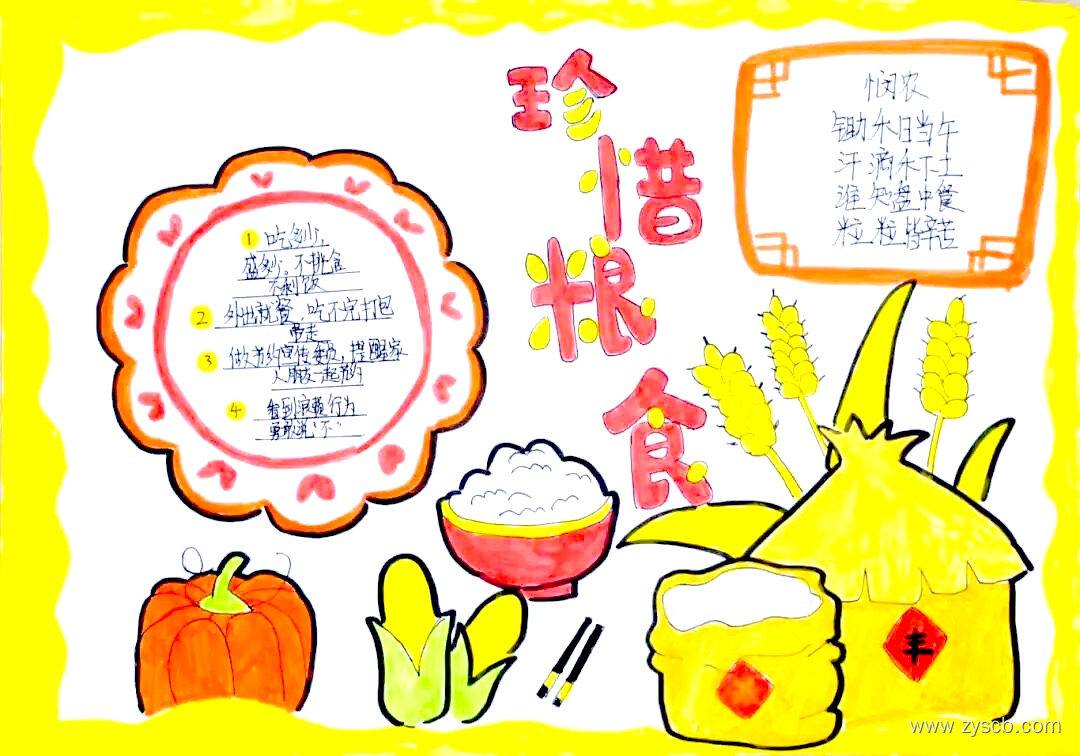 珍惜粮食
悯农
锄禾日当午
汗滴禾下土
谁知盘中餐
粒粒皆辛苦
1 吃多少,
盛多少。不挑食
不剩饭
2 外出就餐,吃不完打包
带走
3 做节约宣传委员,提醒家
人朋友一起节约
4 看到浪费行为
勇敢说“不”
丰
www.zyscb.com